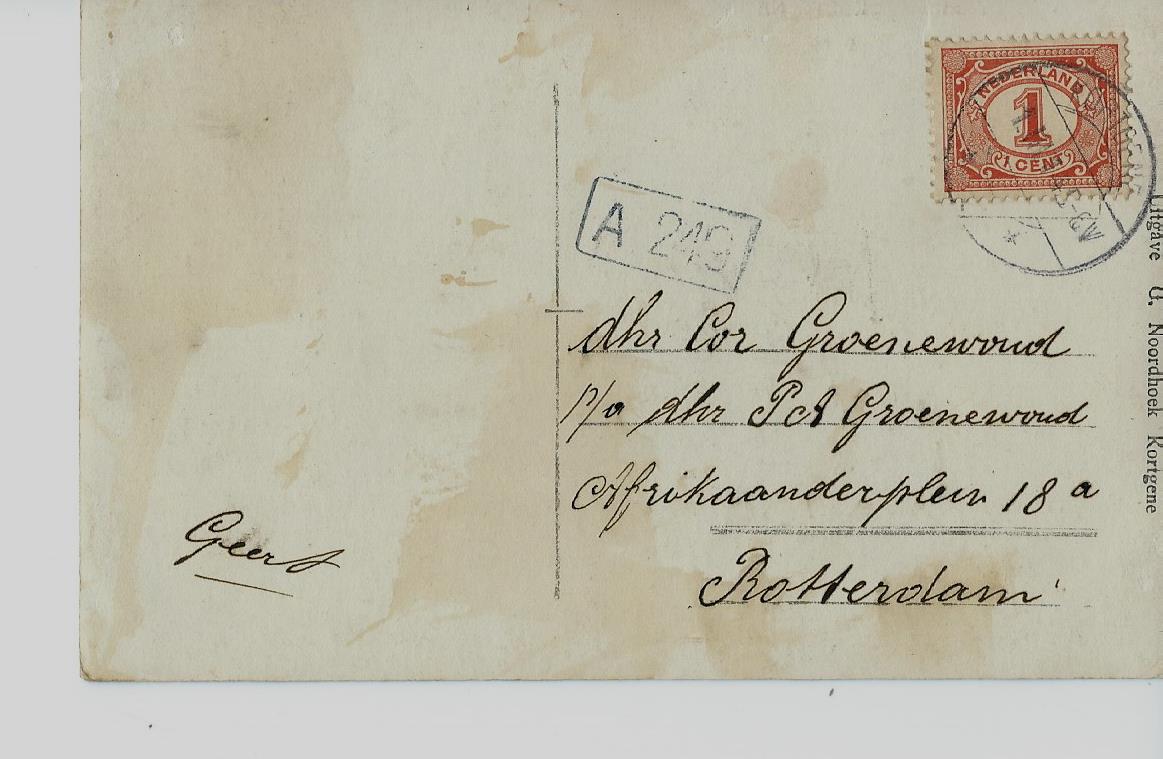 NEDERLAND
1
1 CENT
A 249
dhr Cor Groenewoud
p/a dhr P A Groenewoud
Afrikaanderplein 18 a
Rotterdam
Geert
Uitgave G. Noordhoek Kortgene